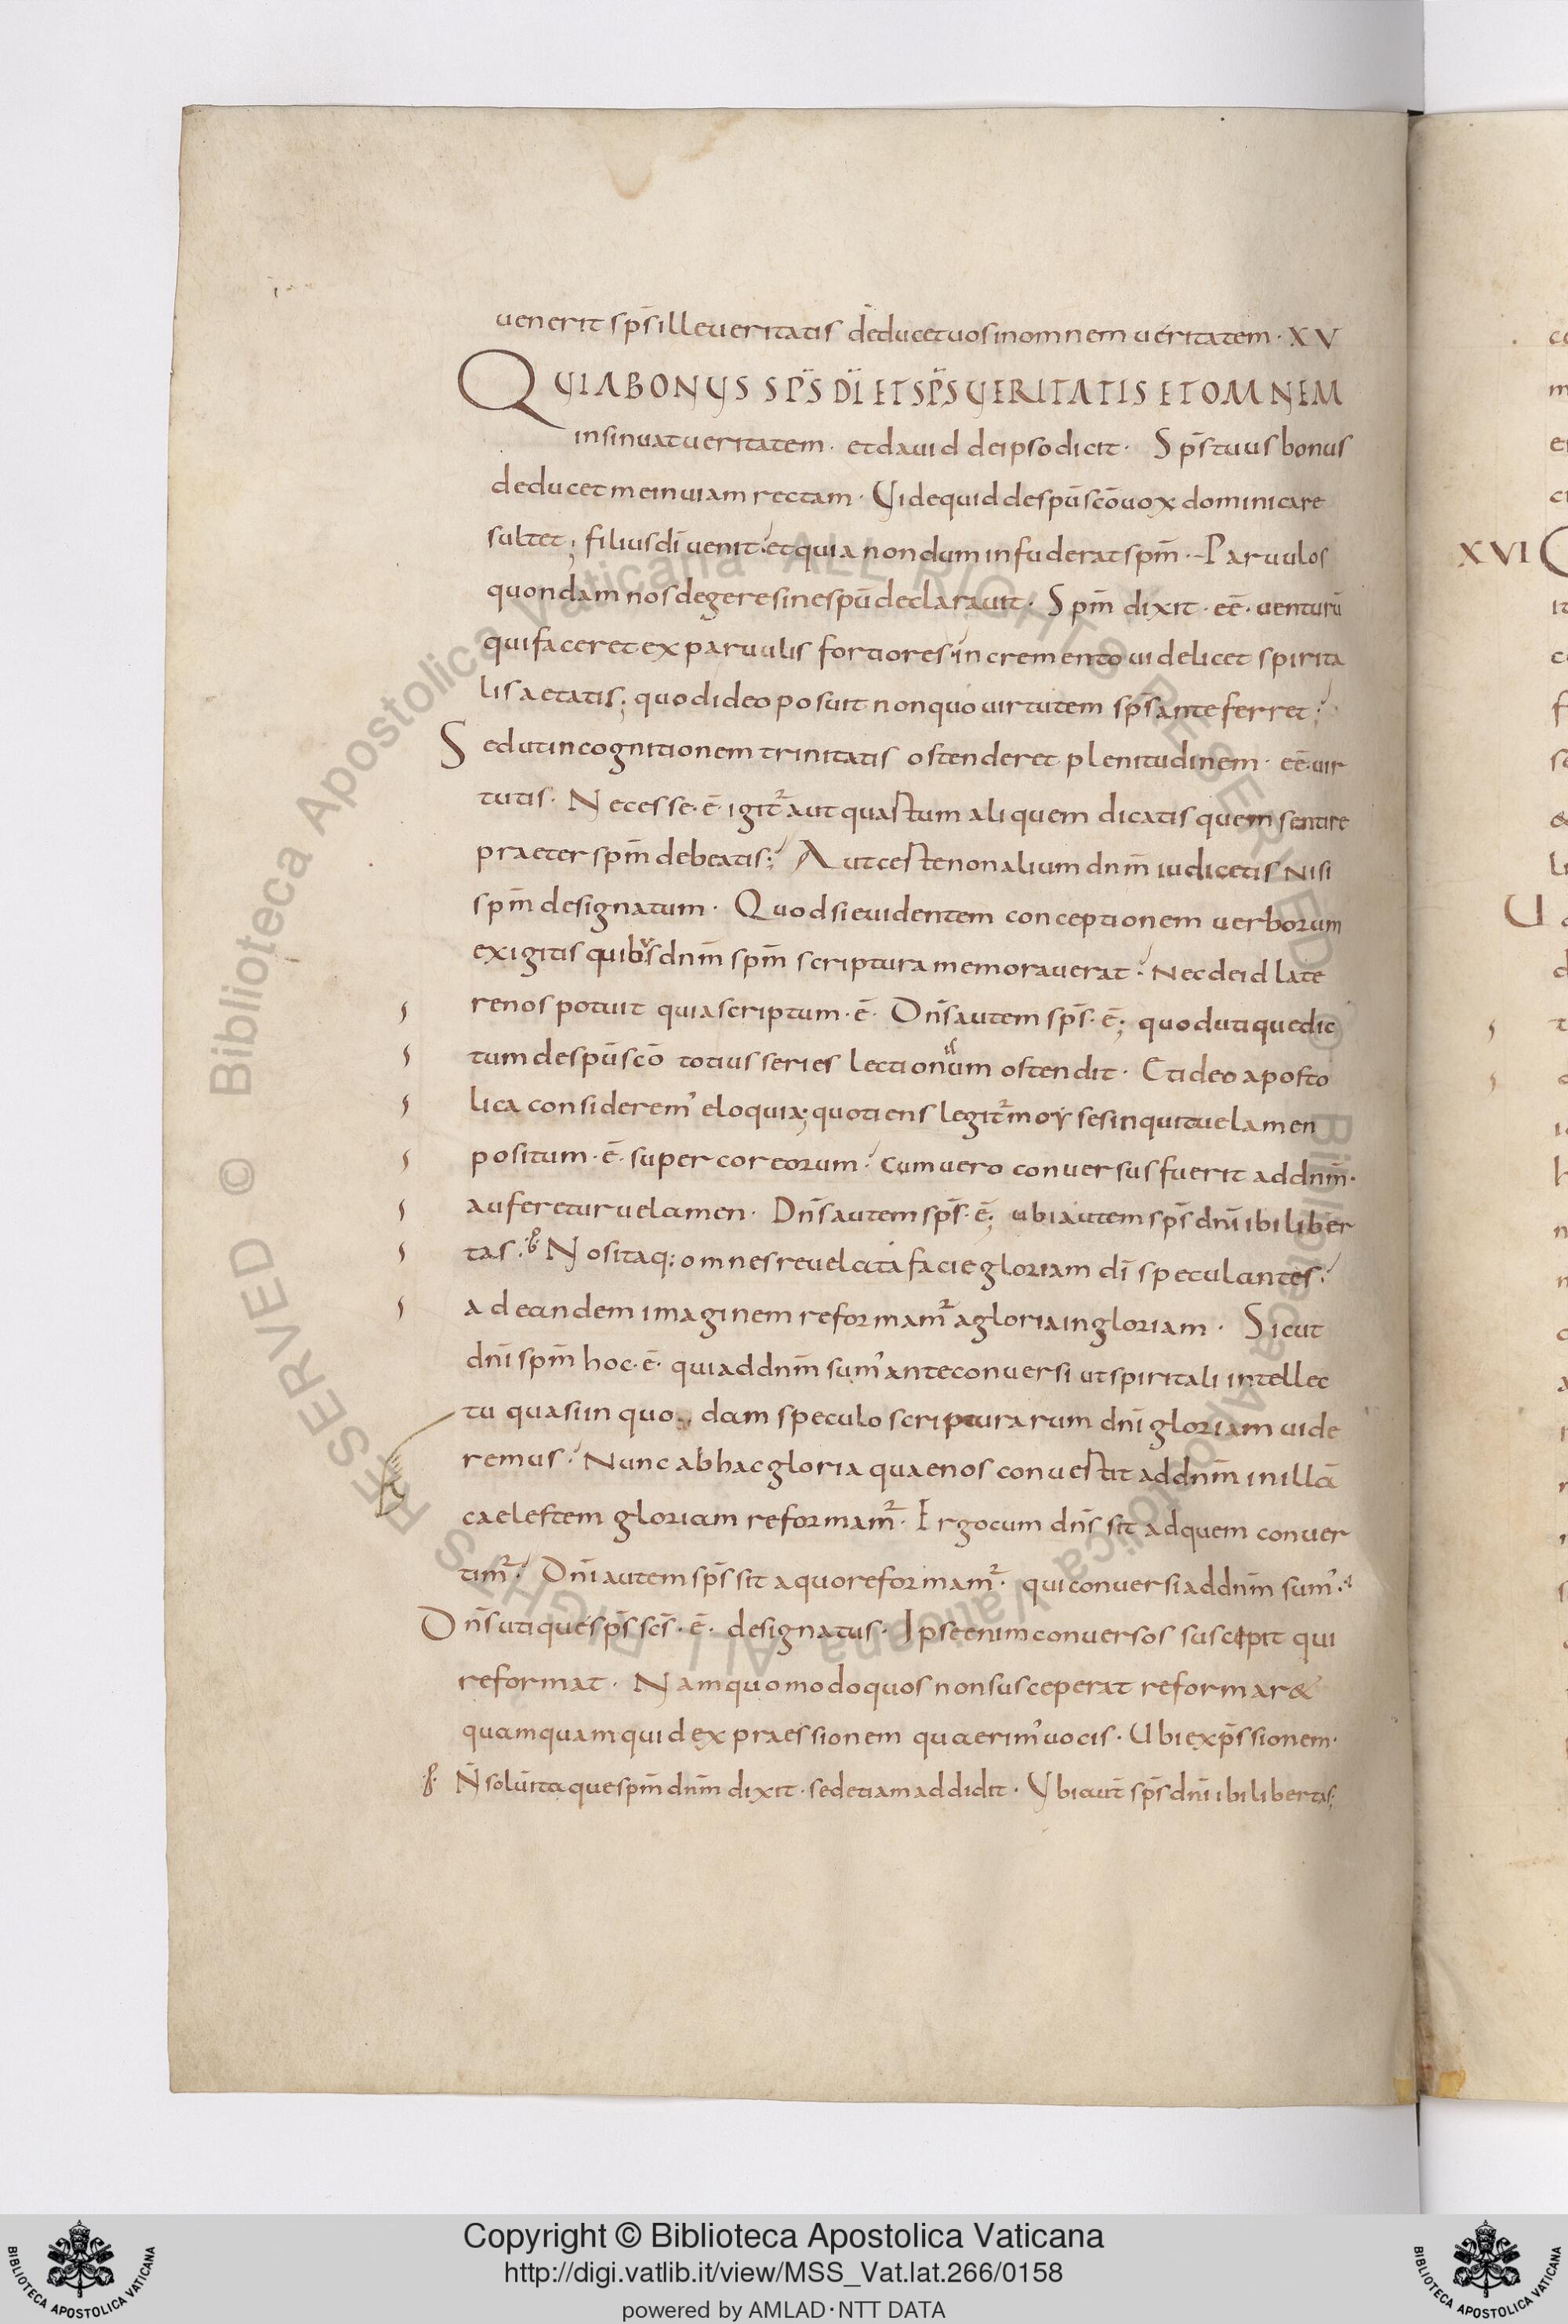 uenerit sp̄s ille ueritatis deducet uos in omnem ueritatem · XV
QUIA BONUS SP̄S DĪ ET SP̄S UERITATIS ET OMNEM
insinuat ueritatem · et dauid de ipso dicit · Sp̄s tuus bonus
deducet me in uiam rectam · Vide quid de spū scō uox dominica re
sultet ; filius dī uenit · et quia nondum infuderat sp̄m · Paruulos
quondam nos degere sine spū declarauit · Sp̄m dixit · eē · uenturū
qui faceret ex paruulis fortiores · incremento uidelicet spirita
lis aetatis ; quod ideo posuit non quo uirtutem sp̄s anteferret ·
Sed ut in cognitionem trinitatis ostenderet plenitudinem · eē · uir
tutis · Necesse · ē · igit² aut quastum aliquem dicatis quem sentire
praeter sp̄m debeatis ; Aut certe non alium dnm̄ iudicetis Nisi
sp̄m designatum · Quod si euidentem conceptionem uerborum
exigitis quibus dnm̄ sp̄m scriptura memorauerat · Nec de id late
re nos potuit quia scriptum · ē · Dn̄s autem sp̄s · ē ; quod utique dic
tum de spū scō totius series lectionum ostendit · Et ideo aposto
lica considerem' eloquia ; quotiens legit² moyses inquit uelamen
positum · ē · super cor eorum · Cum uero conuersus fuerit ad dnm̄ ·
auferetur uelamen · Dn̄s autem sp̄s · ē ; ubi autem sp̄s dnī ibi liber
tas · Nos itaq; omnes reuelata facie gloriam dī speculantes ·
ad eandem imaginem reformam² a gloria in gloriam · Sicut
dnī sp̄m hoc · ē · qui ad dnm̄ sum' ante conuersi ut spiritali intellec
tu quasi in quo dam speculo scripturarum dnī gloriam uide
remus · Nunc ab hac gloria quae nos conuertit ad dnm̄ in illā
caelestem gloriam reformam² · Ergo cum dn̄s sit ad quem conuer
tim² · Dnī autem sp̄s sit a quo reformam² · qui conuersi ad dnm̄ sum' ·
Dn̄s utique sp̄s scs̄ · ē · designatus · Ipse enim conuersos suscepit qui
reformat · Nam quomodo quos non susceperat reformar&
quamquam quid expraessionem quaerim' uocis · Ubi exp̄ssionem ·
N̄ solū itaque sp̄m dnm̄ dixit · sed etiam addidit · Vbi aut̄ sp̄s dnī ibi libertas ;
XVI
© Biblioteca Apostolica Vaticana ALL RIGHTS RESERVED © Biblioteca Apostolica Vaticana ALL RIGHTS RESERVED
Copyright © Biblioteca Apostolica Vaticana
http://digi.vatlib.it/view/MSS_Vat.lat.266/0158
powered by AMLAD·NTT DATA
BIBLIOTECA APOSTOLICA VATICANA
BIBLIOTECA APOSTOLICA VATICANA